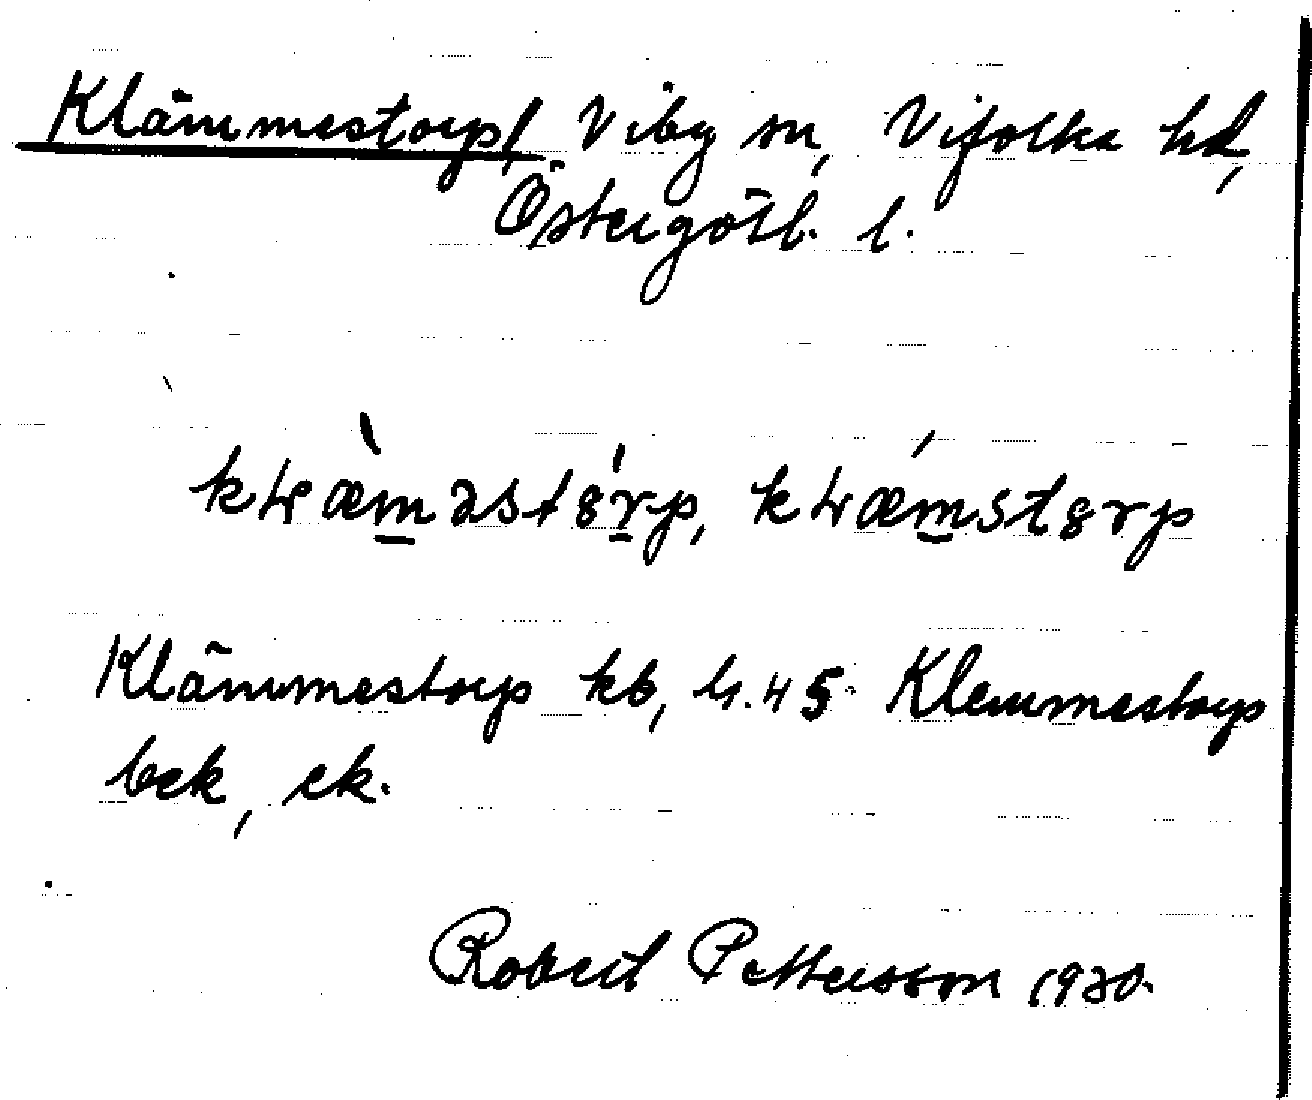 Klämmestorp, Viby sn, Vifolka hd,
Östergötl. l.
kɫæ̀məstȣ́rp, kɫǽmstȣrp
Klämmestorp kb, h. 45. Klemmestorp
bek, ek.
Robert Pettersson 1930.